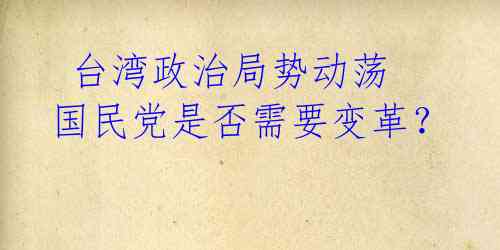 台湾政治局势动荡
国民党是否需要变革？